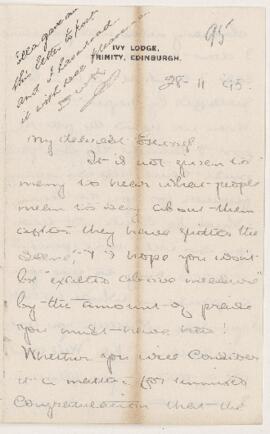 Ella gave me
this letter to post
and I have read
it with real pleasure
95
IVY LODGE,
TRINITY, EDINBURGH.
28 · 11 95.
My dearest
It is not given to
many to hear what people
mean to say about them
after they have quitted the
scene! I hope you won't
be "exalted above measure"
by the amount of praise
you must have had!
Whether you will consider
it a matter for
Congratulation that the